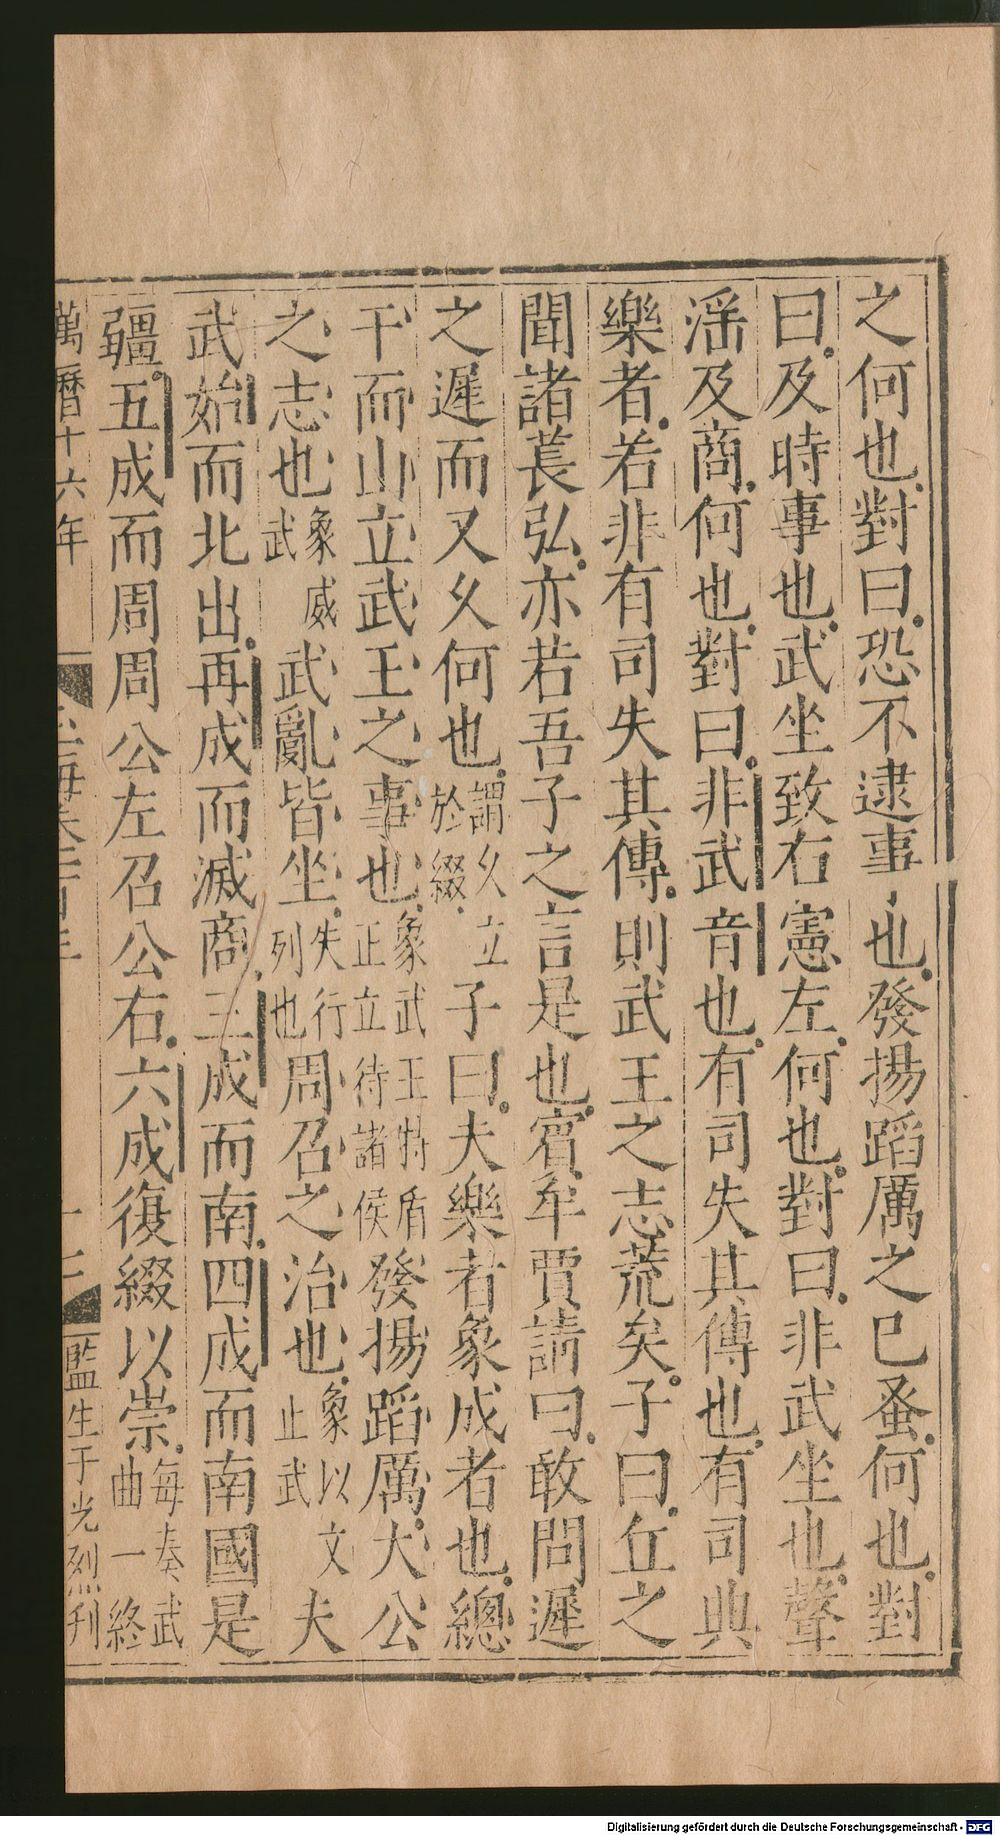 之何也對曰恐不逮事也發揚蹈厲之已蚤何也對
曰及時事也武坐致右憲左何也對曰非武坐也聲
淫及商何也對曰非武音也有司失其傳也有司典
樂者若非有司失其傳則武王之志荒矣子曰丘之
聞諸萇弘亦若吾子之言是也賓牟賈請曰敢問遲
之遲而又久何也謂久立於綴子曰夫樂者象成者也總
干而山立武王之事也象武王持盾正立待諸侯發揚蹈厲大公
之志也象威武武亂皆坐失行列也周召之治也象以文止武夫
武始而北出再成而滅商三成而南四成而南國是
疆五成而周周公左召公右六成復綴以崇每奏武曲一終
萬曆十六年
監生于光烈刊
Digitalisierung gefördert durch die Deutsche Forschungsgemeinschaft - DFG